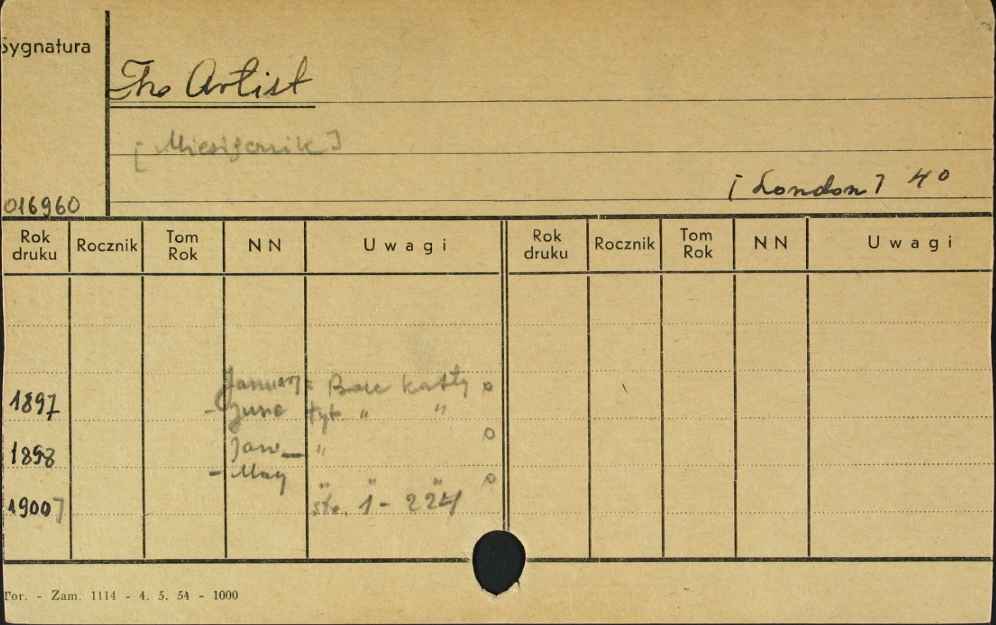 Sygnatura
The Artist
[Miesięcznik]
[London] 4°
016960
Rok druku Rocznik Tom Rok NN Uwagi Rok druku Rocznik Tom Rok NN Uwagi
January Brak karty
1897 - June tyt. " "
1898 Jan - "
- May " " "
1900] str. 1 - 224
Tor. - Zam. 1114 - 4. 5. 54 - 1000